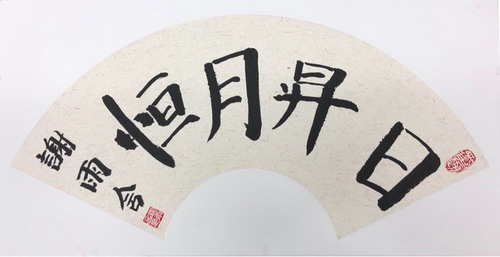 日昇月恒
謝雨含